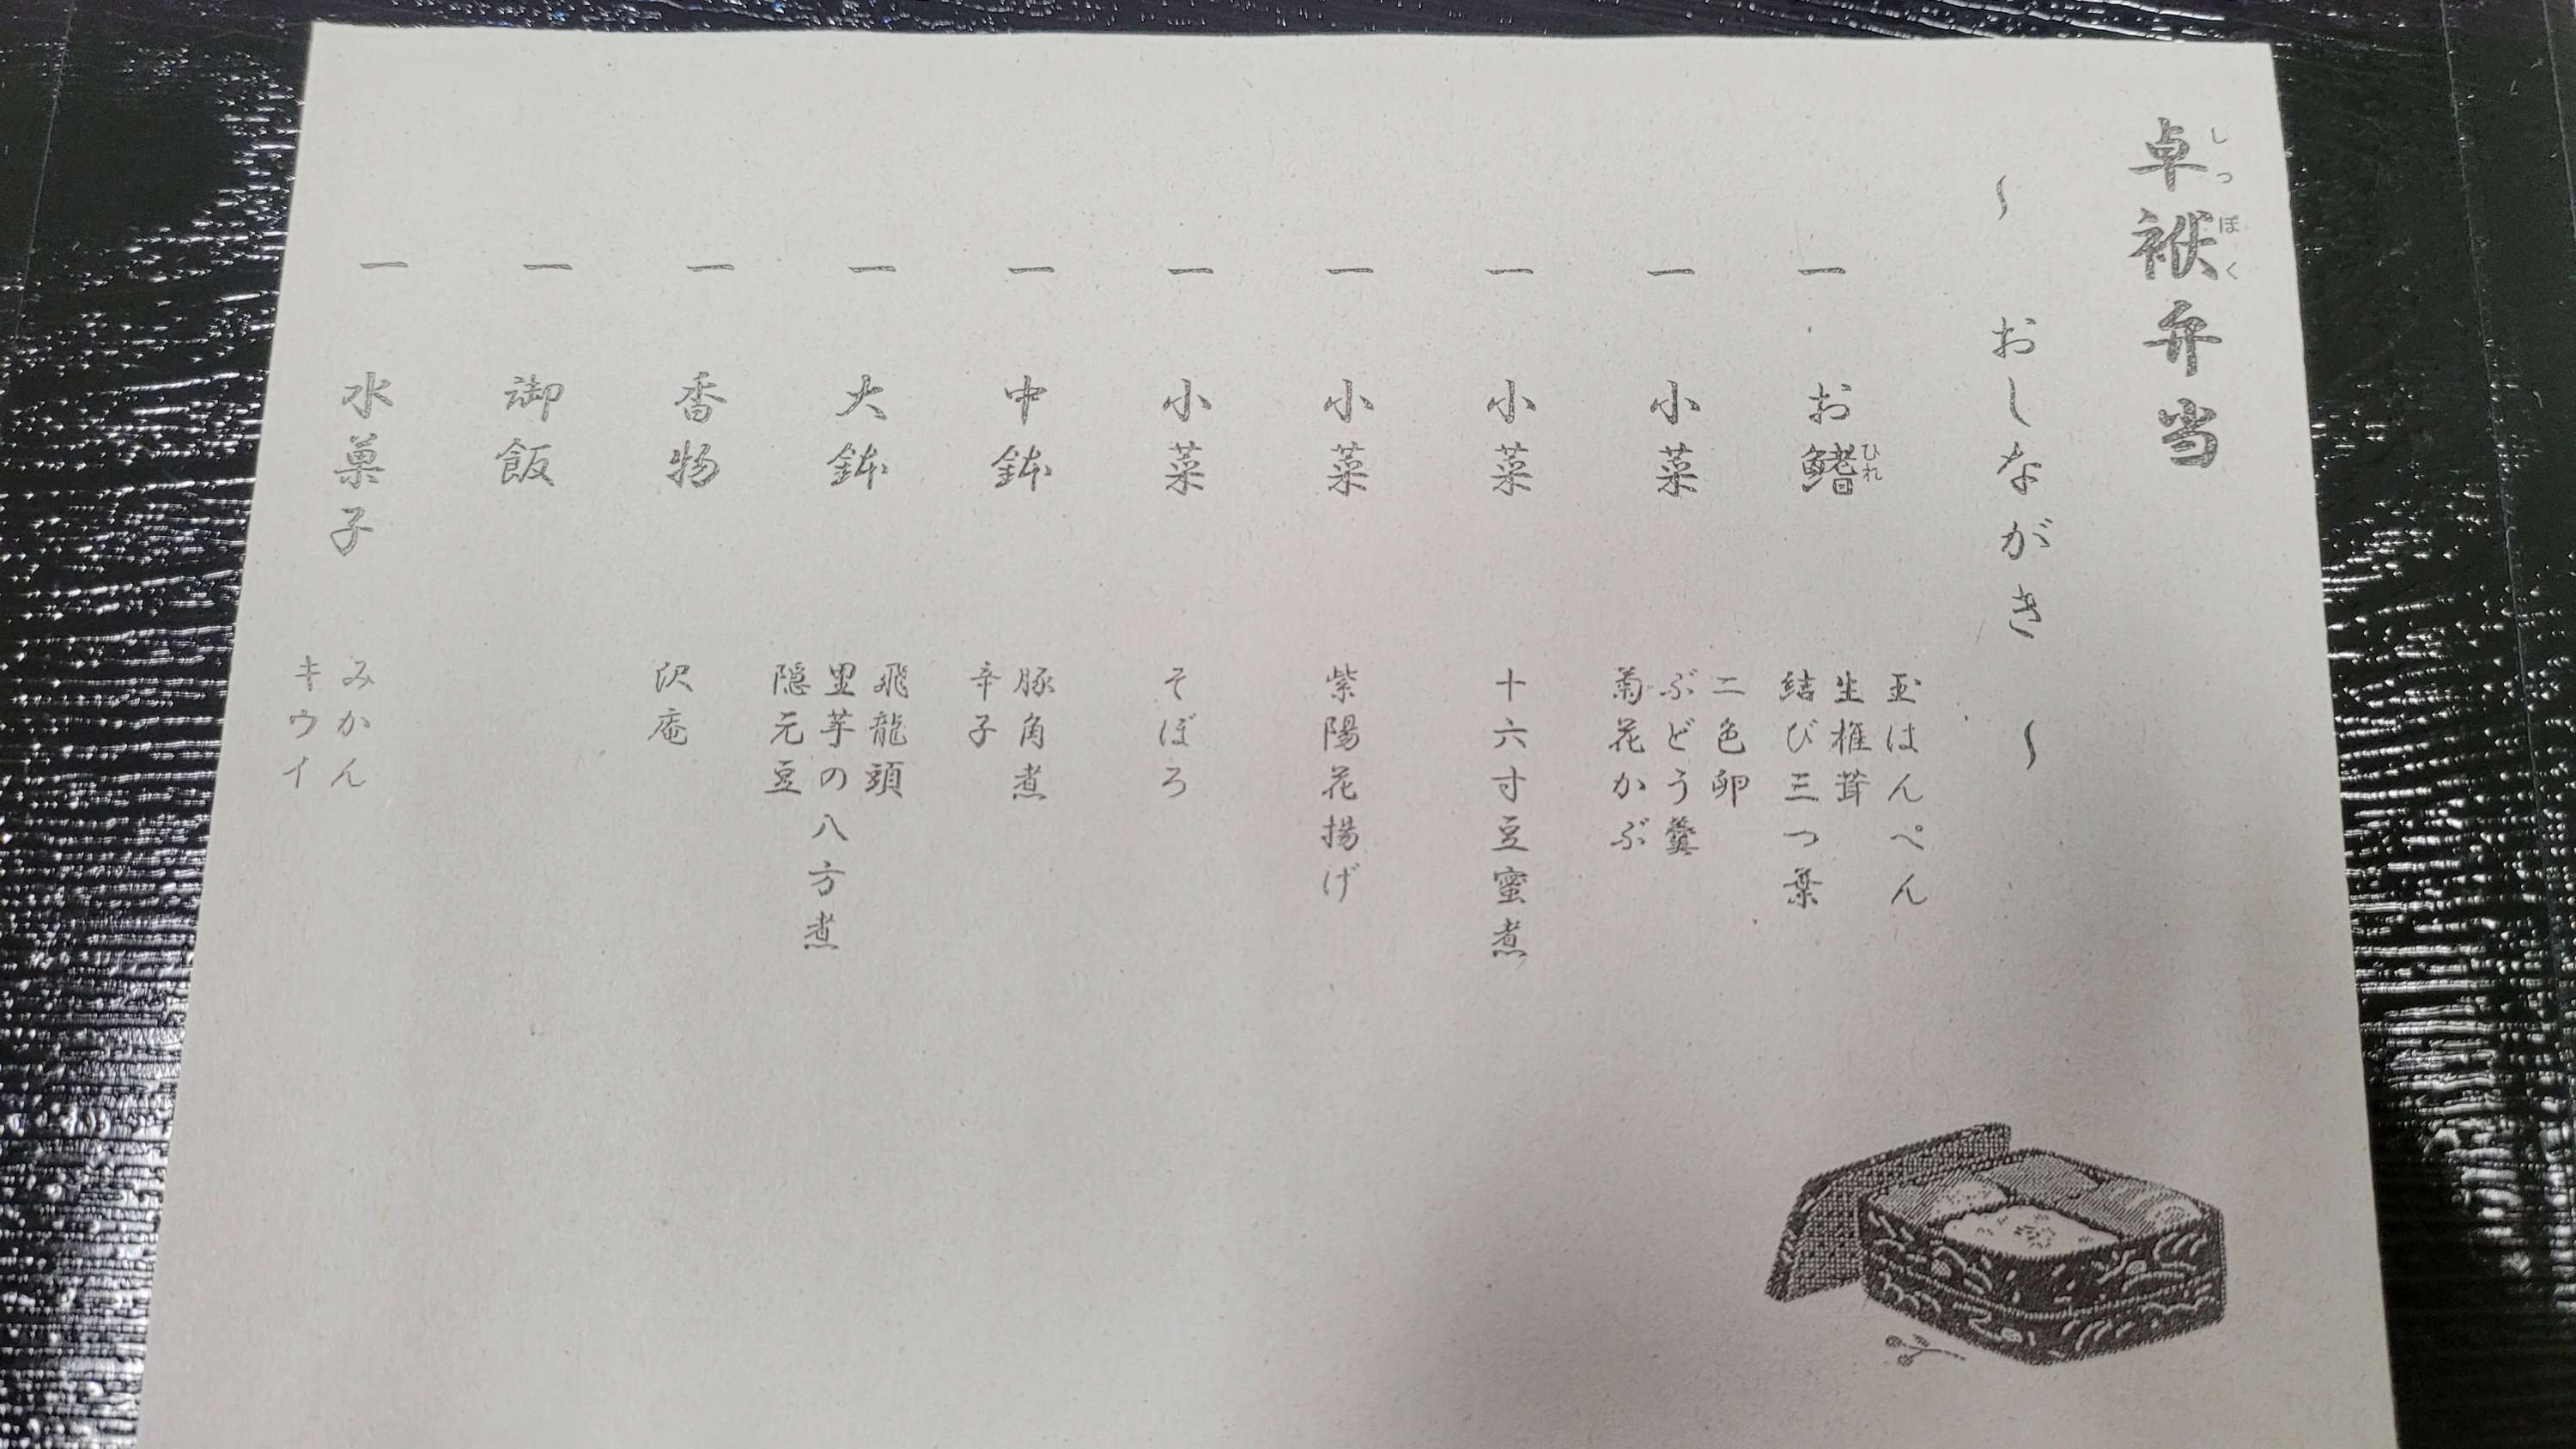 卓袱弁当
しっぽく
～ おしながき ～
一 お鰭
ひれ
玉はんぺん
生椎茸
結び三つ葉
一 小菜
二色卵
ぶどう羹
菊花かぶ
一 小菜
十六寸豆蜜煮
一 小菜
紫陽花揚げ
一 小菜
そぼろ
一 中鉢
豚角煮
辛子
一 大鉢
飛龍頭
里芋の八方煮
隠元豆
一 香物
沢庵
一 御飯
一 水菓子
みかん
キウイ